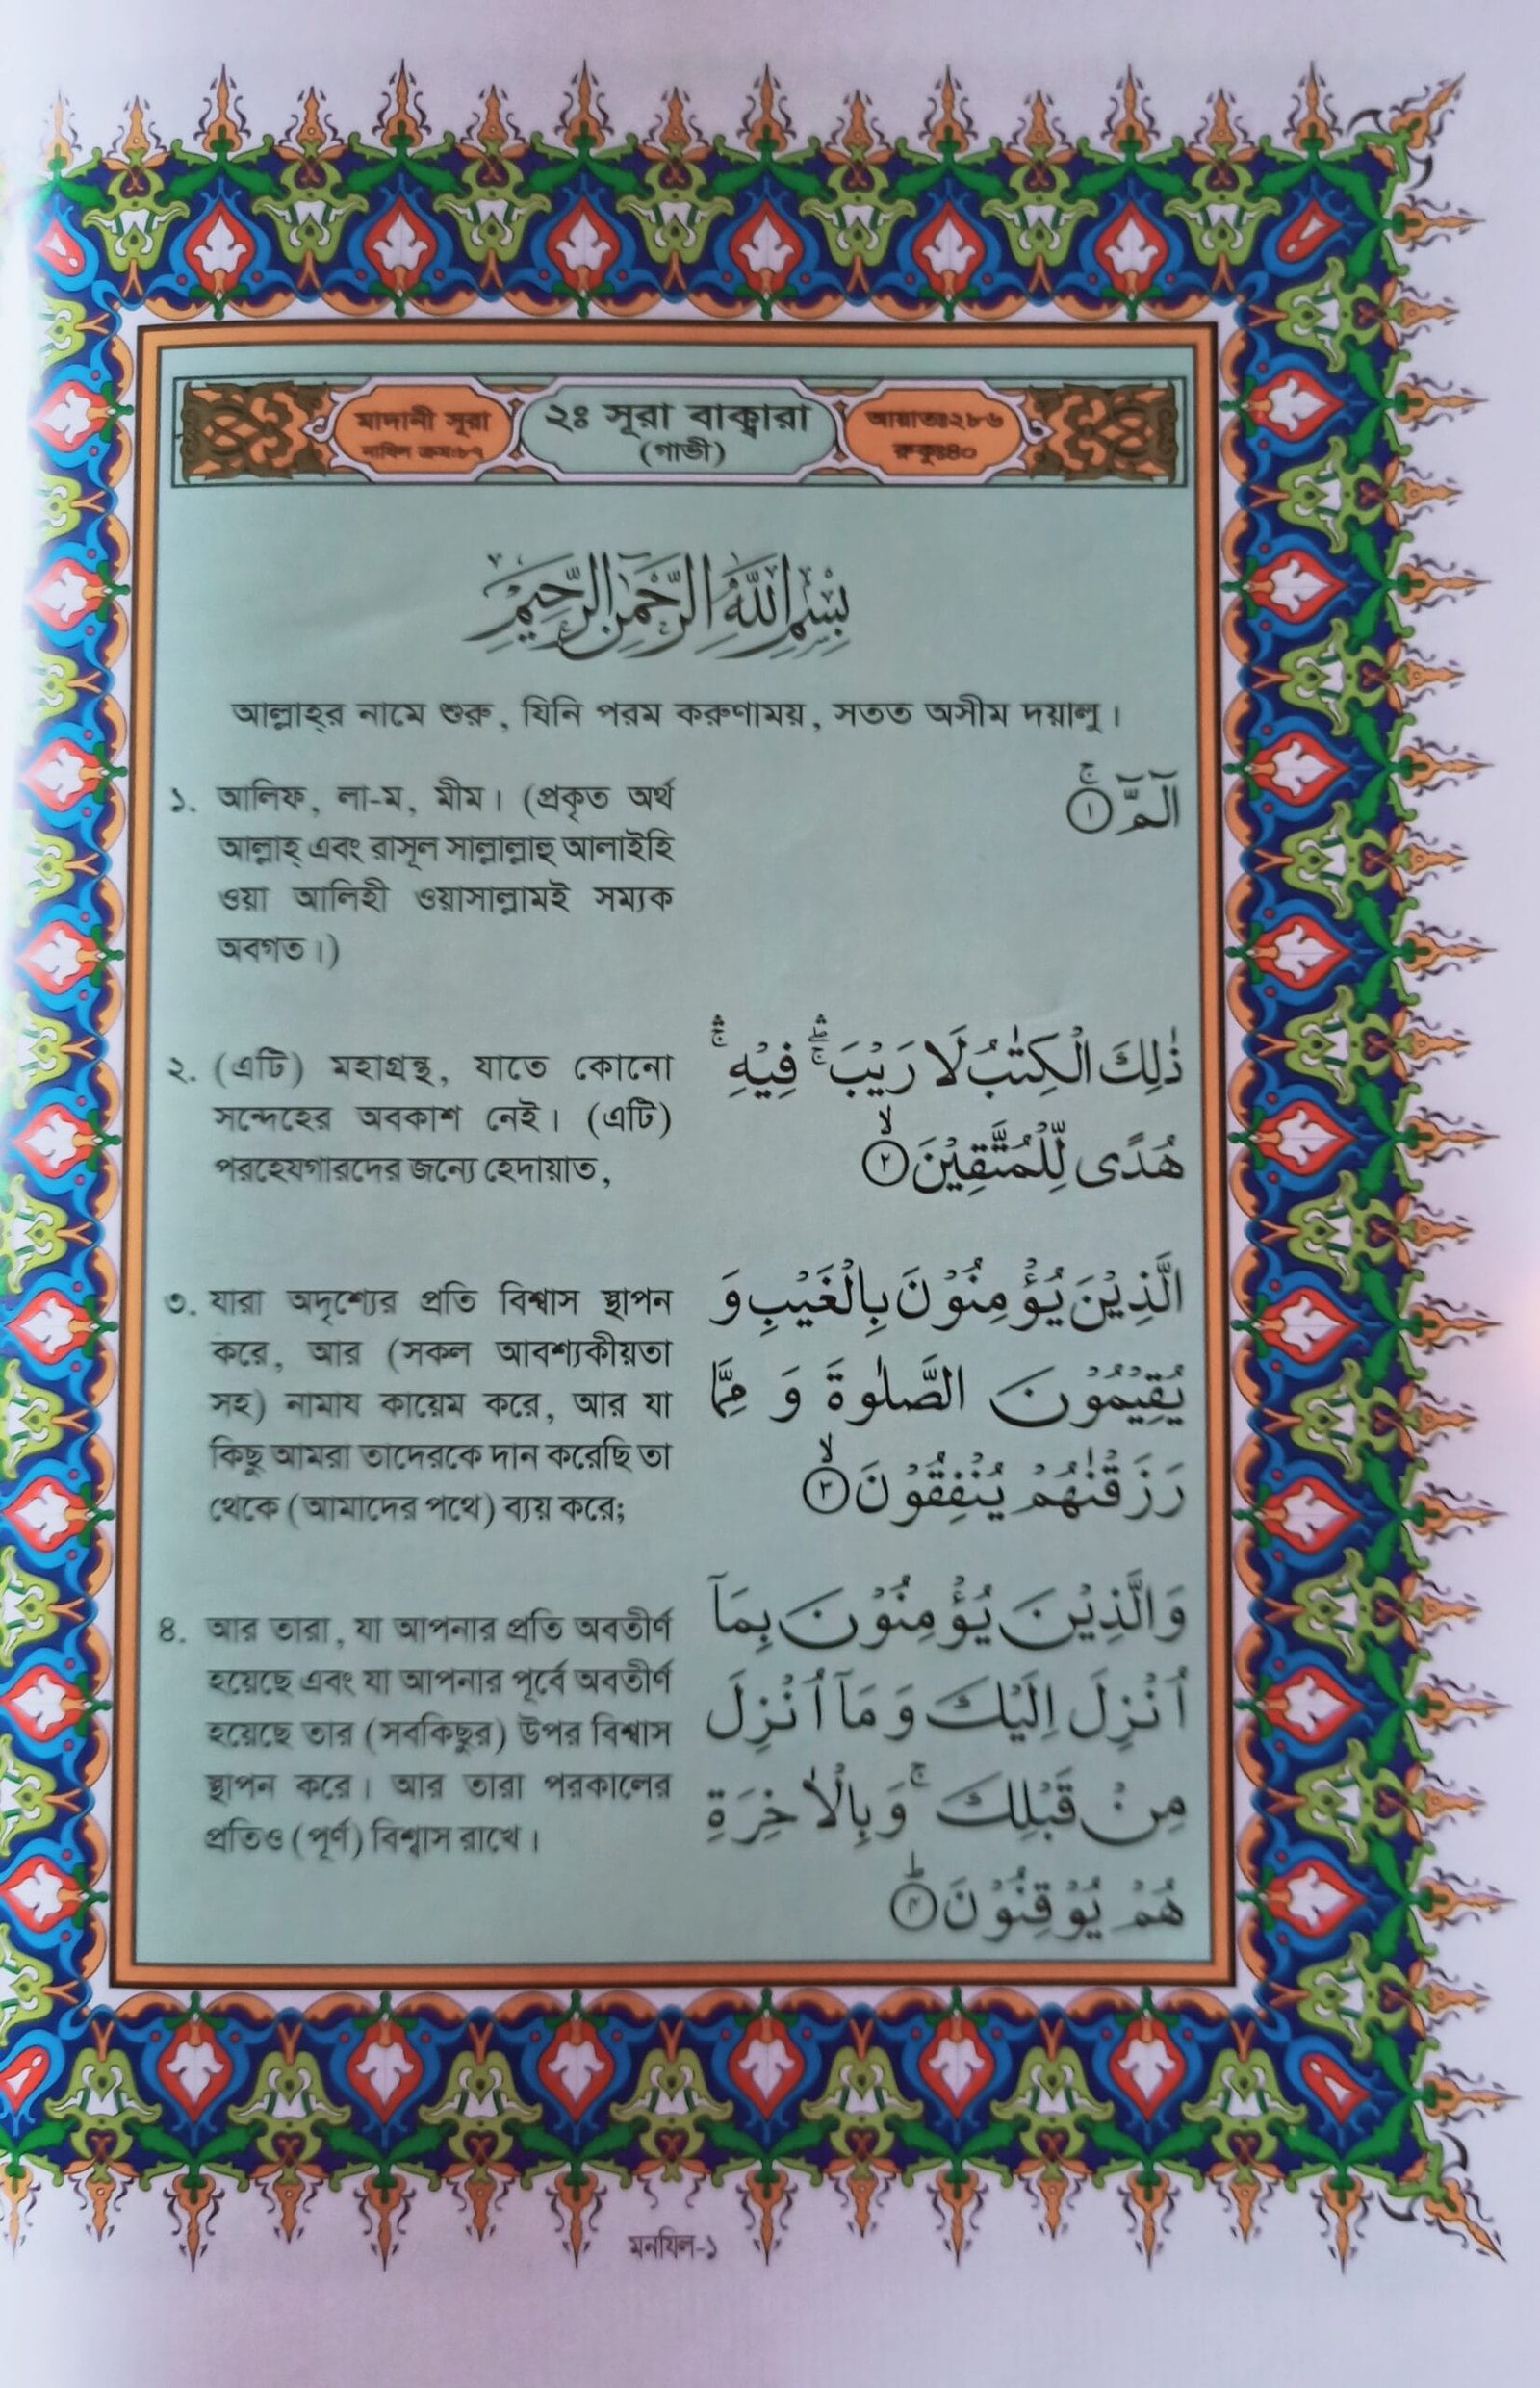 মাদানী সূরা
নাযিল ক্রমঃ৮৭
২ঃ সূরা বাক্বারা
(গাভী)
আয়াতঃ২৮৬
রুকুঃ৪০
بِسْمِ اللّٰهِ الرَّحْمٰنِ الرَّحِيْمِ
আল্লাহ্‌র নামে শুরু, যিনি পরম করুণাময়, সতত অসীম দয়ালু।
১. আলিফ, লা-ম, মীম। (প্রকৃত অর্থ
আল্লাহ্ এবং রাসূল সাল্লাল্লাহু আলাইহি
ওয়া আলিহী ওয়াসাল্লামই সম্যক
অবগত।)
الٓمّٓ ۚ ١
২. (এটি) মহাগ্রন্থ, যাতে কোনো
সন্দেহের অবকাশ নেই। (এটি)
পরহেযগারদের জন্যে হেদায়াত,
ذٰلِكَ الْكِتٰبُ لَا رَيْبَ ۛۚ فِيْهِ ۛۚ
هُدًى لِّلْمُتَّقِيْنَ ۙ ٢
৩. যারা অদৃশ্যের প্রতি বিশ্বাস স্থাপন
করে, আর (সকল আবশ্যকীয়তা
সহ) নামায কায়েম করে, আর যা
কিছু আমরা তাদেরকে দান করেছি তা
থেকে (আমাদের পথে) ব্যয় করে;
الَّذِيْنَ يُؤْمِنُوْنَ بِالْغَيْبِ وَ
يُقِيْمُوْنَ الصَّلٰوةَ وَ مِمَّا
رَزَقْنٰهُمْ يُنْفِقُوْنَ ۙ ٣
৪. আর তারা, যা আপনার প্রতি অবতীর্ণ
হয়েছে এবং যা আপনার পূর্বে অবতীর্ণ
হয়েছে তার (সবকিছুর) উপর বিশ্বাস
স্থাপন করে। আর তারা পরকালের
প্রতিও (পূর্ণ) বিশ্বাস রাখে।
وَالَّذِيْنَ يُؤْمِنُوْنَ بِمَآ
اُنْزِلَ اِلَيْكَ وَ مَآ اُنْزِلَ
مِنْ قَبْلِكَ ۚ وَبِالْاٰخِرَةِ
هُمْ يُوْقِنُوْنَ ؕ ٤
মনযিল-১